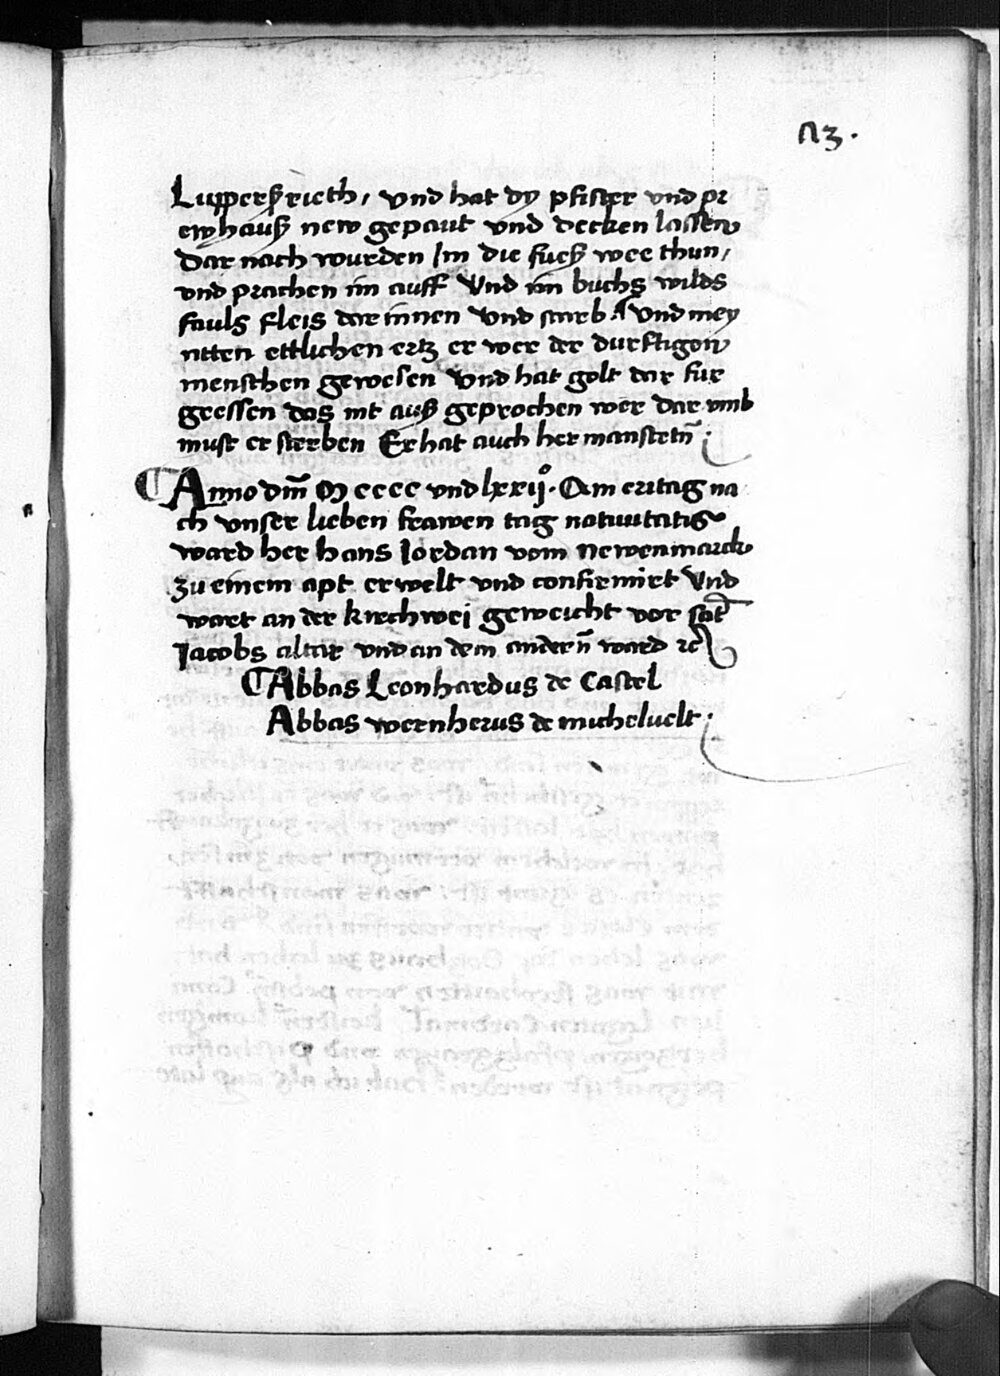 N3.
Lupperßrieth, vnd hat dy pfister vnd pr
ewhauß new gepaut vnd decken lassen
Dar nach wurden Im die fueß wee thun,
vnd prachen im auff Vnd im buchs wilds
fauls fleis dar innen Vnd starb. Vnd mey
nten ettlichen ertz er wer der durftigen
menschen gewesen Vnd hat golt dar fur
gressen das nit auß geprochen wer Dar vmb
must er sterben Er hat auch her manstetn̄
¶ Anno dm̄ M cccc vnd lxxijº. Am eritag na
ch vnser lieben frawen tag natiuitatis
ward her hans Iordan vom newenmarck
zu einem apt erwelt vnd confirmirt Vnd
wart an der kirchwei geweicht vor sat̄
Iacobs altar vnd an dem andern̄ ward rc
¶ Abbas Leonhardus de Castel
Abbas wernherus de micheluelt